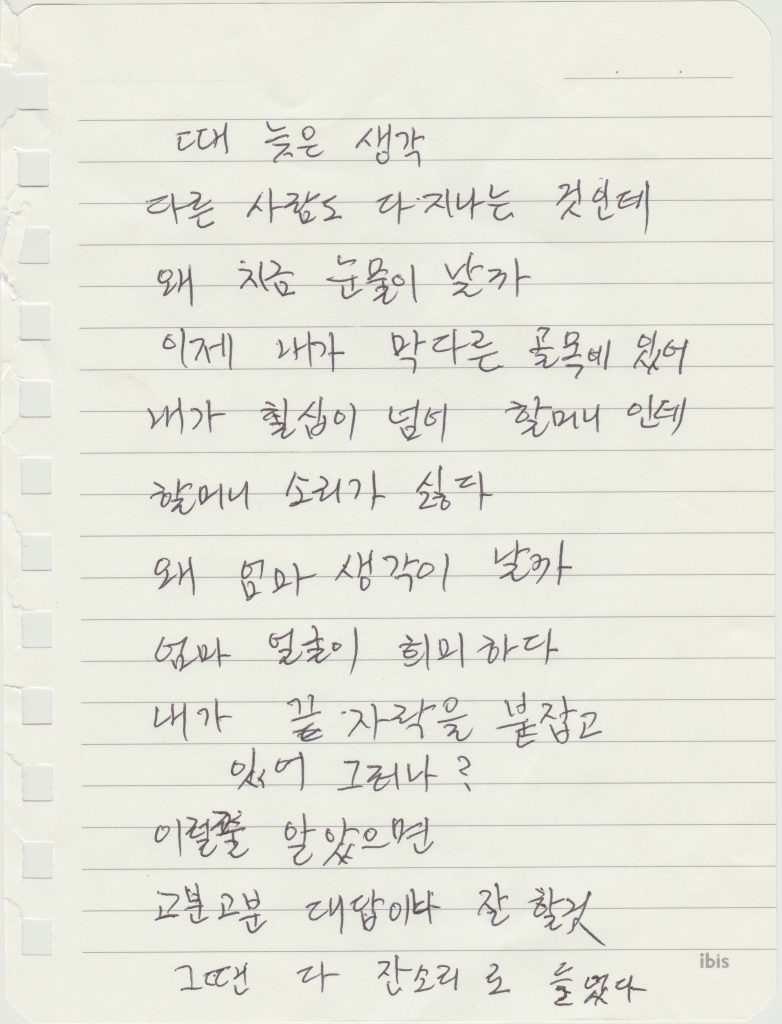 때 늦은 생각
다른 사람도 다 지나는 것인데
왜 지금 눈물이 날까
이제 내가 막다른 골목에 있어
내가 칠십이 넘어 할머니 인데
할머니 소리가 싫다
왜 엄마 생각이 날까
엄마 얼굴이 희미하다
내가 끝 자락을 붙잡고
있어 그러나?
이럴줄 알았으면
고분고분 대답이나 잘 할것
그땐 다 잔소리로 들었다
ibis